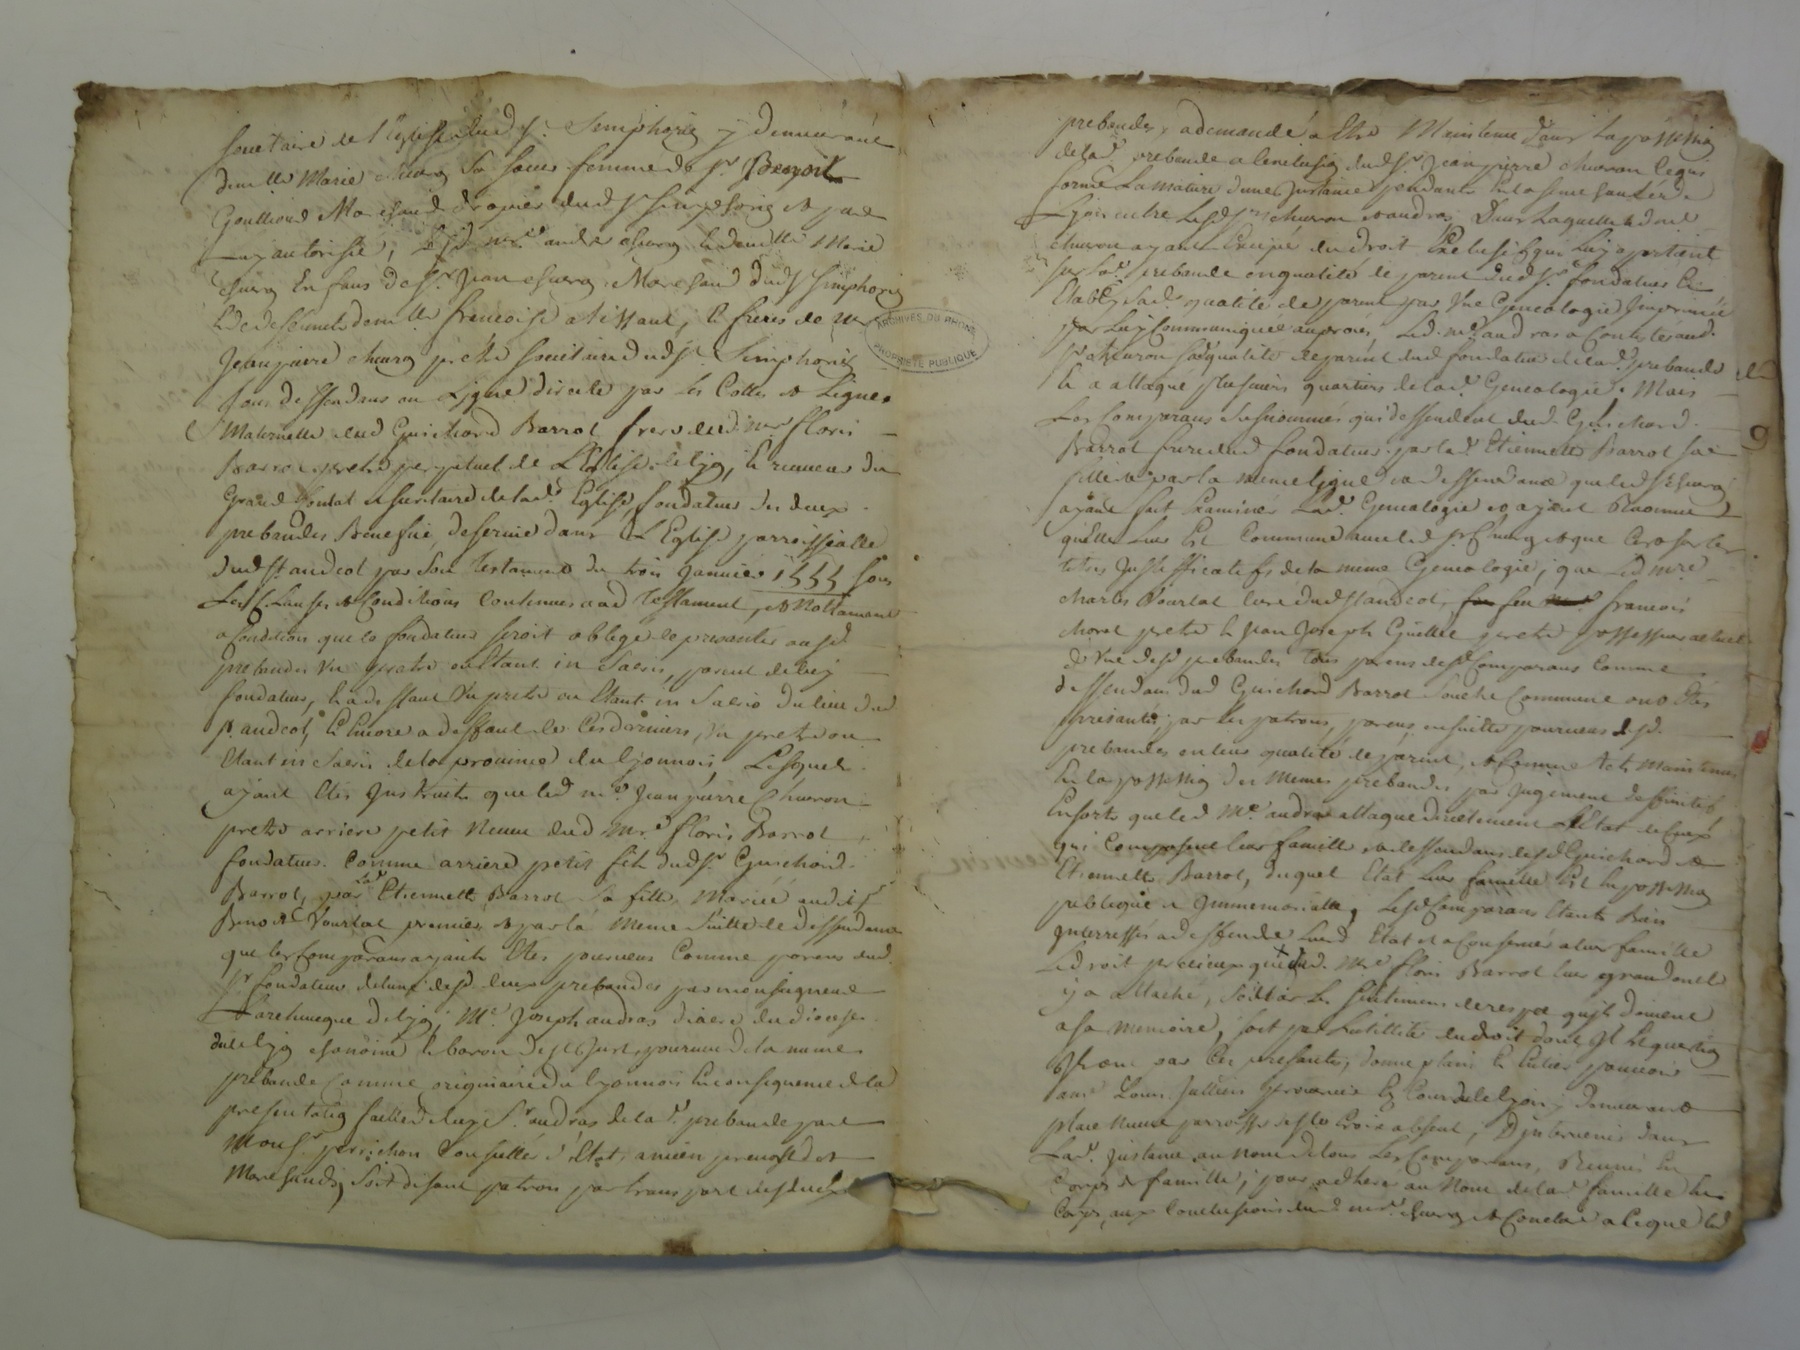 de l'Eglise dud St. Simphorien y demeurant
dem.lle Marie sa soeur femme de Sr. Benoit
Goullioud Marchand drapier dud St simphorien et par
luy autorisée, mre. andré et dem.lle Marie
Enfans de Sr. Jean Marchand dud St Simphorien
et de deffunte dem.lle francoise , et freres de mre
Jean pierre pretre societaire dud St. Simphorien
tous dessendans en Ligne directe par les Cottés et Lignes
Maternelle dud Guichard Barrot frere dud. mre floris
Barrot pretre perpetuel de L'Eglise de lyon, et receveur du
Grand et secretaire de lad. Eglise fondateur des deux
prebandes Benefice desservie dans L'Eglise parroissialle
dud St. andeol par son testament du trois Janvier 1555 sous
Les Clauses et Conditions Contenues aud testament, et Nottament
a Condition que le fondateur seroit obligé de presanter ausd
prebandes un pretre ou Etant in Sacris, parent de luy
fondateur, et a deffaut un pretre ou Etant in Sacris du lieu dud
St. andeol, et Encore a deffaut de Ces derniers, un pretre ou
Etant in Sacris de la province du lyonnois, Lesquels
ayant Etés Instruits que led mre. Jean pierre
pretre arriere petit Neveu dud mre floris Barrot
fondateur. Comme arriere petit fils dud Sr. Guichard
Barrot, par lad. Etiennette Barrot sa fille, Mariée audit Sr
Benoit premier, et par la Meme Suitte de dessendance
que les Comparans ayants Etés pourveus Comme parens dud.
Sr fondateur de l'une desd deux prebandes par monseigneur
L'archeveque de lyon, Me. Joseph andras diacre du diocese
de lyon chanoine et baron de St Just, pourveu de la meme
prebande Comme originaire du lyonnois En consequence de la
presentation faitte de luy Sr. andras de lad. prebande par
Mons.r perrichon Conseiller d'Etat, ancien prevost des
Marchands, soit disant patron par transport desd deux
prebandes, a demandé a Etre Maintenu dans la possession
de lad. prebande a l'exclusion dud Sr. Jean pierre ce qui
forme La matiere d'une Instance pendante en la senechaussée de
Lyon entre Lesd Srs et andras, Dans Laquelle led
ayant Excipé du droit Exclusif qui luy apartient
sur lad. prebande en qualité de parent dud Sr. fondateur Et
Etably sad. qualité de parent par une Genealogie Imprimée
par luy Communiquée au procés, Led. mre. andras a Contesté aud.
Sr sa qualité de parent dud fondateur de lad. prebande
Et a attaqué plusieurs quartiers de lad. Genealogie. Mais
Les Comparans susnommés qui dessendent dud. Guichard
Barrot frere dud fondateur par lad. Etiennette Barrot sa
fille et par la meme ligne et dessendance que led Sr
ayant fait Examiner Lad. Genealogie et ayant Reconnu
qu'elle leur Est Commune avec led Sr et que Ce sur les
titres Justifficatifs de la meme Genealogie, que Led mre
charles Curé dud St andeol, feu francois
Morel pretre Et Jean Joseph Guillet pretre possesseur actuel
d'une desd prebandes tous parens desd Comparans Comme
dessendans dud Guichard Barrot Souche Commune ont Etés
presantés par les patrons, parens, ensuitte pourveus desd.
prebandes en leur qualité de parent, et Comme tels Maintenus
En la possession des Memes prebandes par Jugement deffinitif,
Ensorte que led Me. andras attaque directement L'Etat de Ceux
qui Composent leur famille et dessendans desd Guichard et
Etiennette Barrot, duquel Etat leur famille Est En possession
publique et Immemorialle, Lesd Comparans Etants Bien
Interressés a deffendre leurd Etat et a Conserver a leur famille
Le droit precieux que led. Mre floris Barrot leur grand oncle
y a attaché, soit par les sentimens de respect qu'ils doivent
a sa memoire, soit par L'utillité du droit dont Il Est question
ont par Ces presantes, donné plein Et Entier pouvoir
a me Louis Jullien procureur Es Cours de lyon y demeurant
place Neuve parroisse Ste Croix absent, D'intervenir dans
Lad. Instance au nom de tous Les Comparans, Reunis En
Corps de famille, pour adherer au Nom de lad. famille En
Corps, aux Conclusions dud mre. et Conclure a Ce que led
ARCHIVES DU RHONE
PROPRIÉTÉ PUBLIQUE